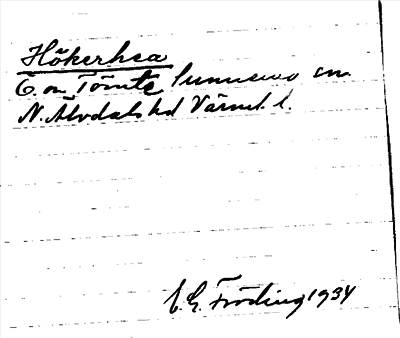 Hökerhea
Ö. om Tömte Sunnemo sn.
N. Älvdals hd Värml. l.
E. G. Fröding 1934